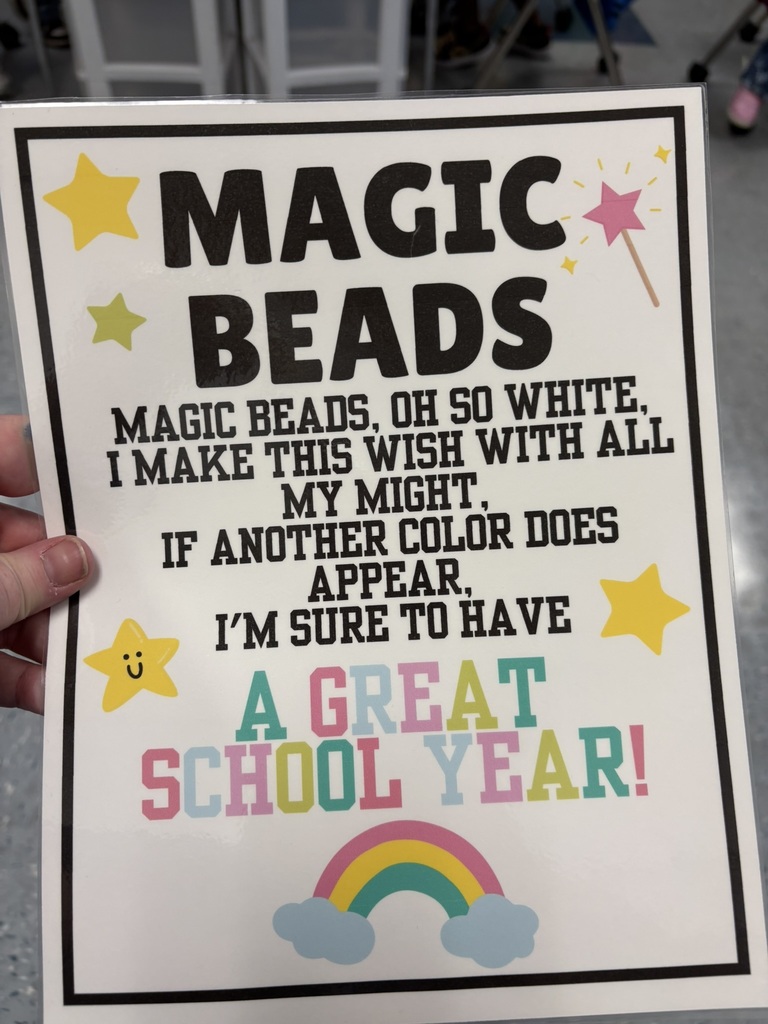 MAGIC
BEADS
MAGIC BEADS, OH SO WHITE,
I MAKE THIS WISH WITH ALL
MY MIGHT,
IF ANOTHER COLOR DOES
APPEAR,
I'M SURE TO HAVE
A GREAT
SCHOOL YEAR!